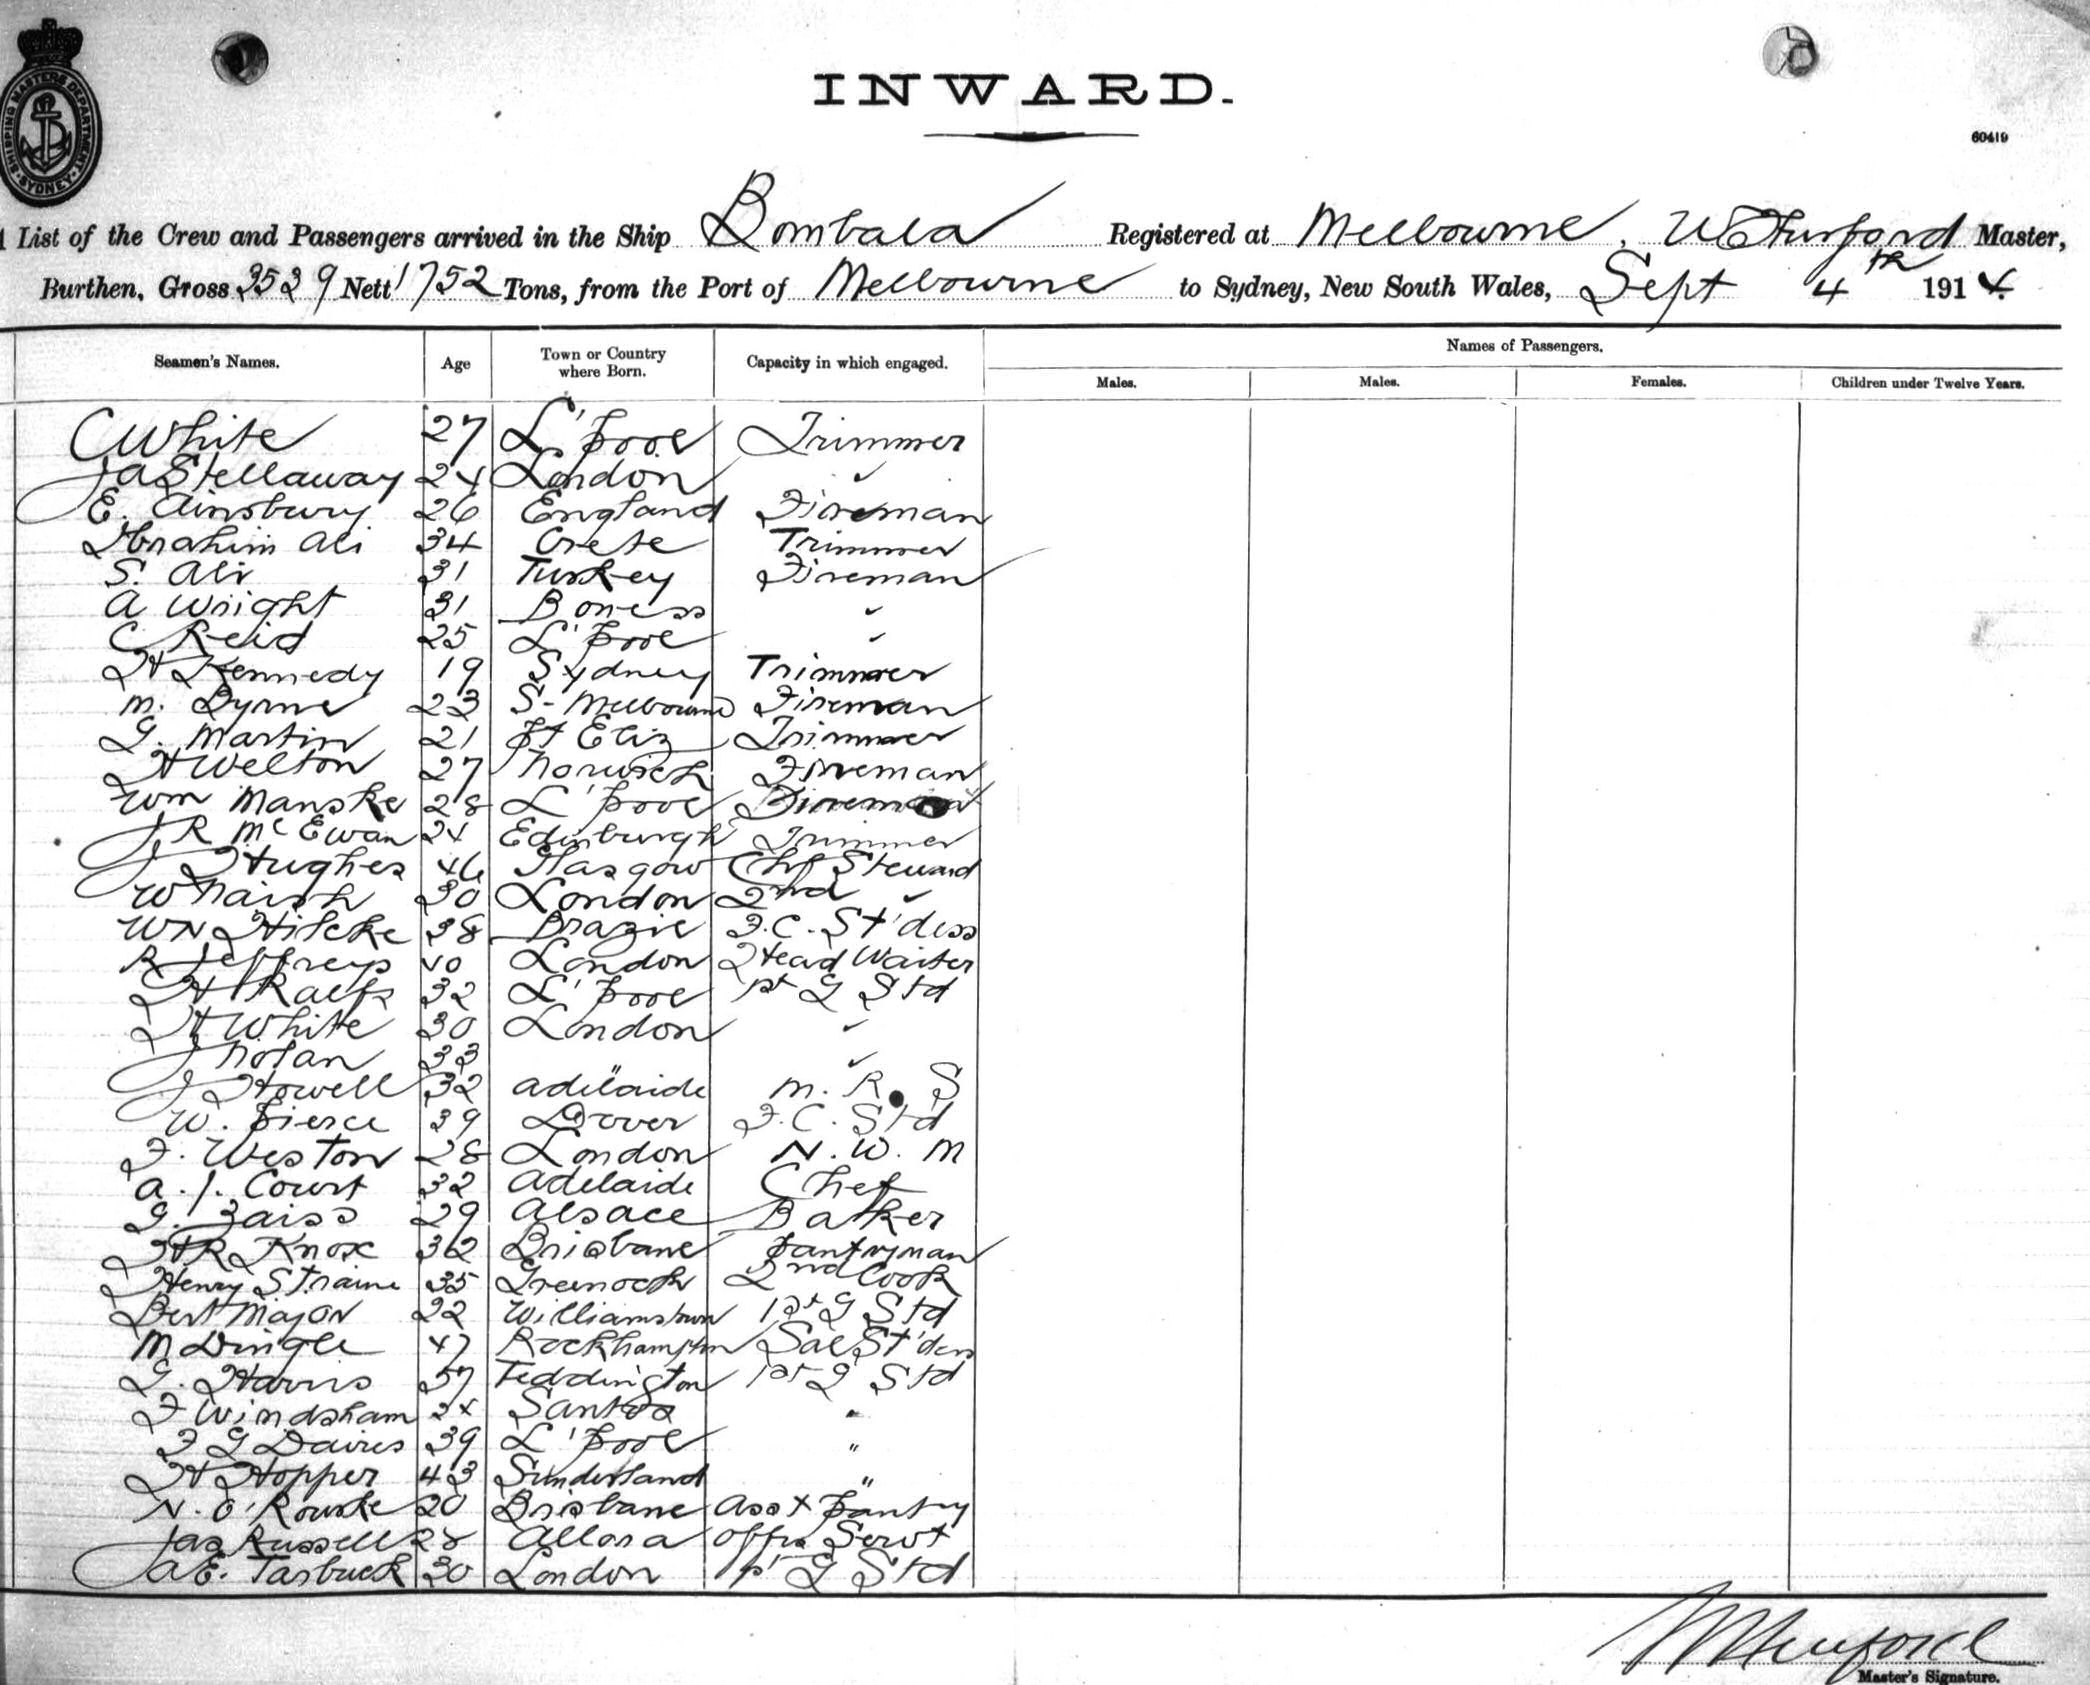 SHIPPING MASTERS DEPARTMENT SYDNEY
INWARD.
60419
A List of the Crew and Passengers arrived in the Ship Bombala Registered at Melbourne, Master,
Burthen, Gross 3539 Nett 1752 Tons, from the Port of Melbourne to Sydney, New South Wales, Sept 4th 1914.
Seamen's Names. Age Town or Country where Born. Capacity in which engaged. Names of Passengers.
Males. Males. Females. Children under Twelve Years.
C White 27 L'pool Trimmer
J A Stellaway 24 London "
E. Ainsbury 26 England Fireman
Ibrahim Ali 34 Crete Trimmer
S. Ali 31 Turkey Fireman
A Wright 31 Boness "
C Reid 25 L'pool "
H Kennedy 19 Sydney Trimmer
M. Byrne 23 S-Melbourne Fireman
G. Martin 21 Pt Eliz Trimmer
H Welton 27 Norwich Fireman
Wm Manske 28 L'pool Fireman
J R McEwan 24 Edinburgh Trimmer
J Hughes 46 Glasgow Chf Steward
W Naish 30 London 2nd "
W N Hilcke 38 Brazil F.C. St'dess
R Jeffreys 40 London Head Waiter
H Ralfs 32 L'pool 1st G Std
H White 30 London "
J Nolan 33 " "
J Howell 32 Adelaide M. R. S
W. Pierce 39 Dover F.C. Std
F. Weston 28 London N. W. M
A. J. Court 32 Adelaide Chef
G. Zaiss 29 Alsace Baker
H R Knox 32 Brisbane Pantryman
Henry Straine 35 Greenock 2nd Cook
Bert Major 22 Williamstown 1st G Std
M Dingle 47 Rockhampton Sal St'dess
G. Harris 37 Teddington 1st G Std
F Windsham 24 Santos "
F G Davies 39 L'pool "
H Hopper 43 Sunderland "
N. O'Rourke 20 Brisbane Asst Pantry
Jas Russell 28 Allora Offrs Servt
J A E. Tarbuck 30 London 1st G Std
Master's Signature.